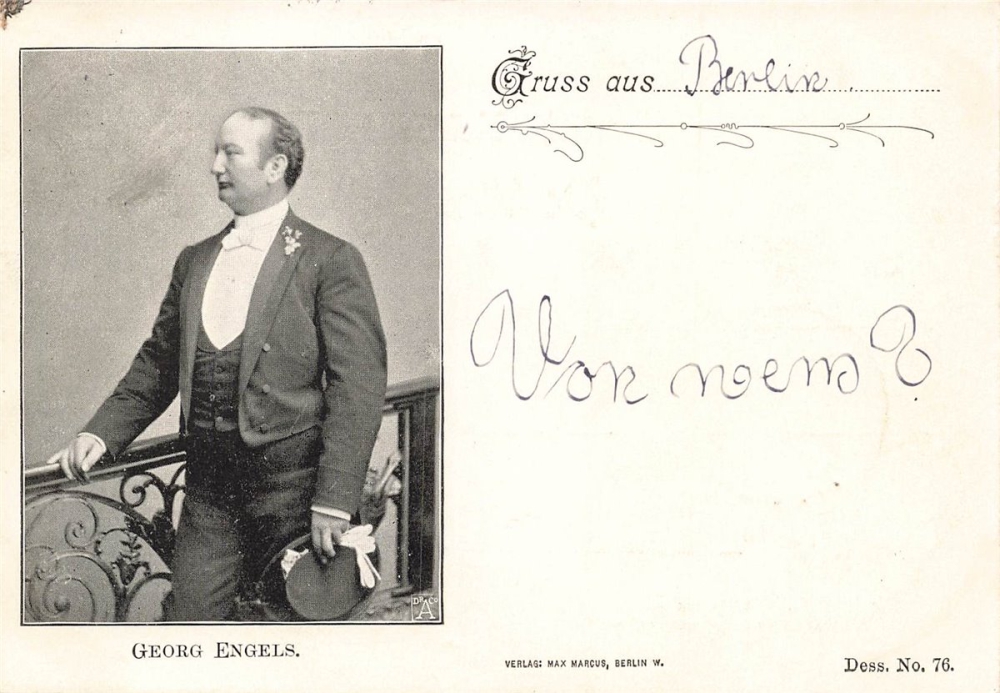 Gruss aus Berlin
Von wem?
GEORG ENGELS.
VERLAG: MAX MARCUS, BERLIN W.
Dess. No. 76.